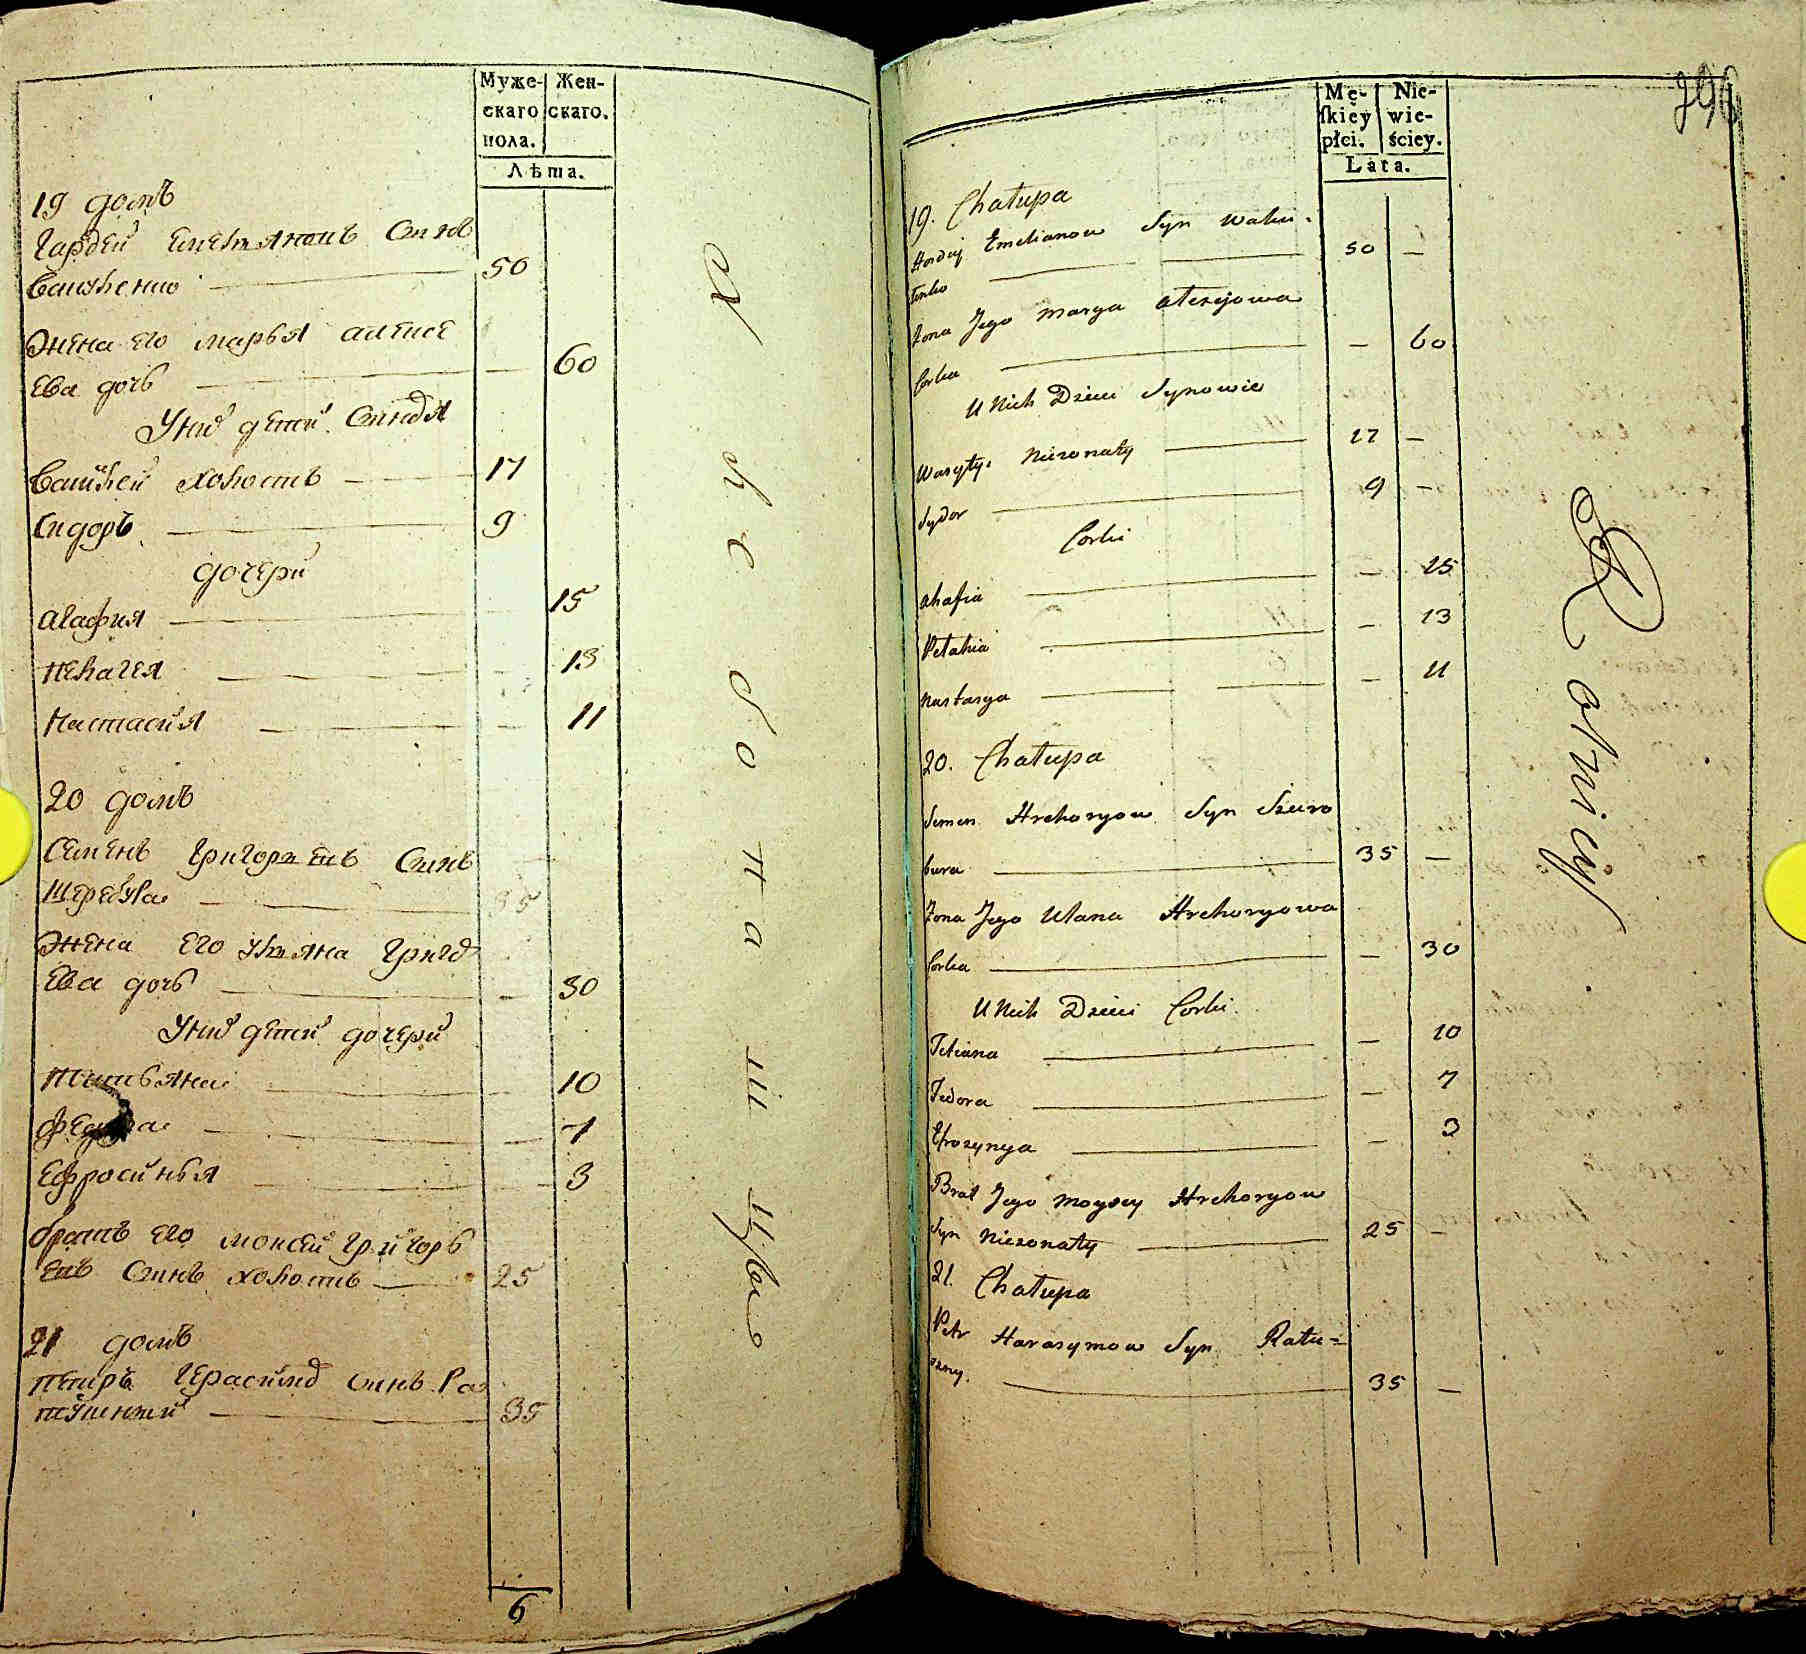 Муже-
скаго
пола.
Жен-
скаго.
Лѣта.
19 домъ
Гардей Емельяновъ Сынъ
50
Жена его марья алексе
ева дочь — — 60
Унихъ детей Сыновя
Василей холостъ — 17
Сидоръ — 9
дочери
агафия — 15
пелагея — — 13
Настасия — — 11
20 домъ
Семенъ Григорьевъ Сынъ
— 35
Жена его ульяна Григо
Ева дочь — — 30
Унихъ детей дочери
татьяна — — 10
федора — — 7
Ефросинья — — 3
братъ его моисей григорь
евъ Сынъ холостъ — 25
21 домъ
петръ Герасимо Сынъ Ра
тушный — 35
6
Mę-
ſkiey
płci.
Nie-
wie-
ściey.
Lata.
296
19. Chałupa
Hordij Emelianow Syn Waku-
lenko — 50 —
Żona Jego Marya Alexijowa
Corka — — 60
U Nich Dzieci Synowie
Wasyly Niezonaty — 17 —
Sydor — 9 —
Corki
Ahafia — — 15
Pelahia — — 13
Nastasya — — 11
20. Chałupa
Semen Hrehoryow Syn Szuro
bura — 35 —
Żona Jego Ulana Hrehoryowa
Corka — — 30
U Nich Dzieci Corki
Tetiana — — 10
Fedora — — 7
Efrozynya — — 3
Brat Jego Moysey Hrehoryow
Syn Niezonaty — 25 —
21. Chałupa
Petr Harasymow Syn Ratu=
szny. — 35 —